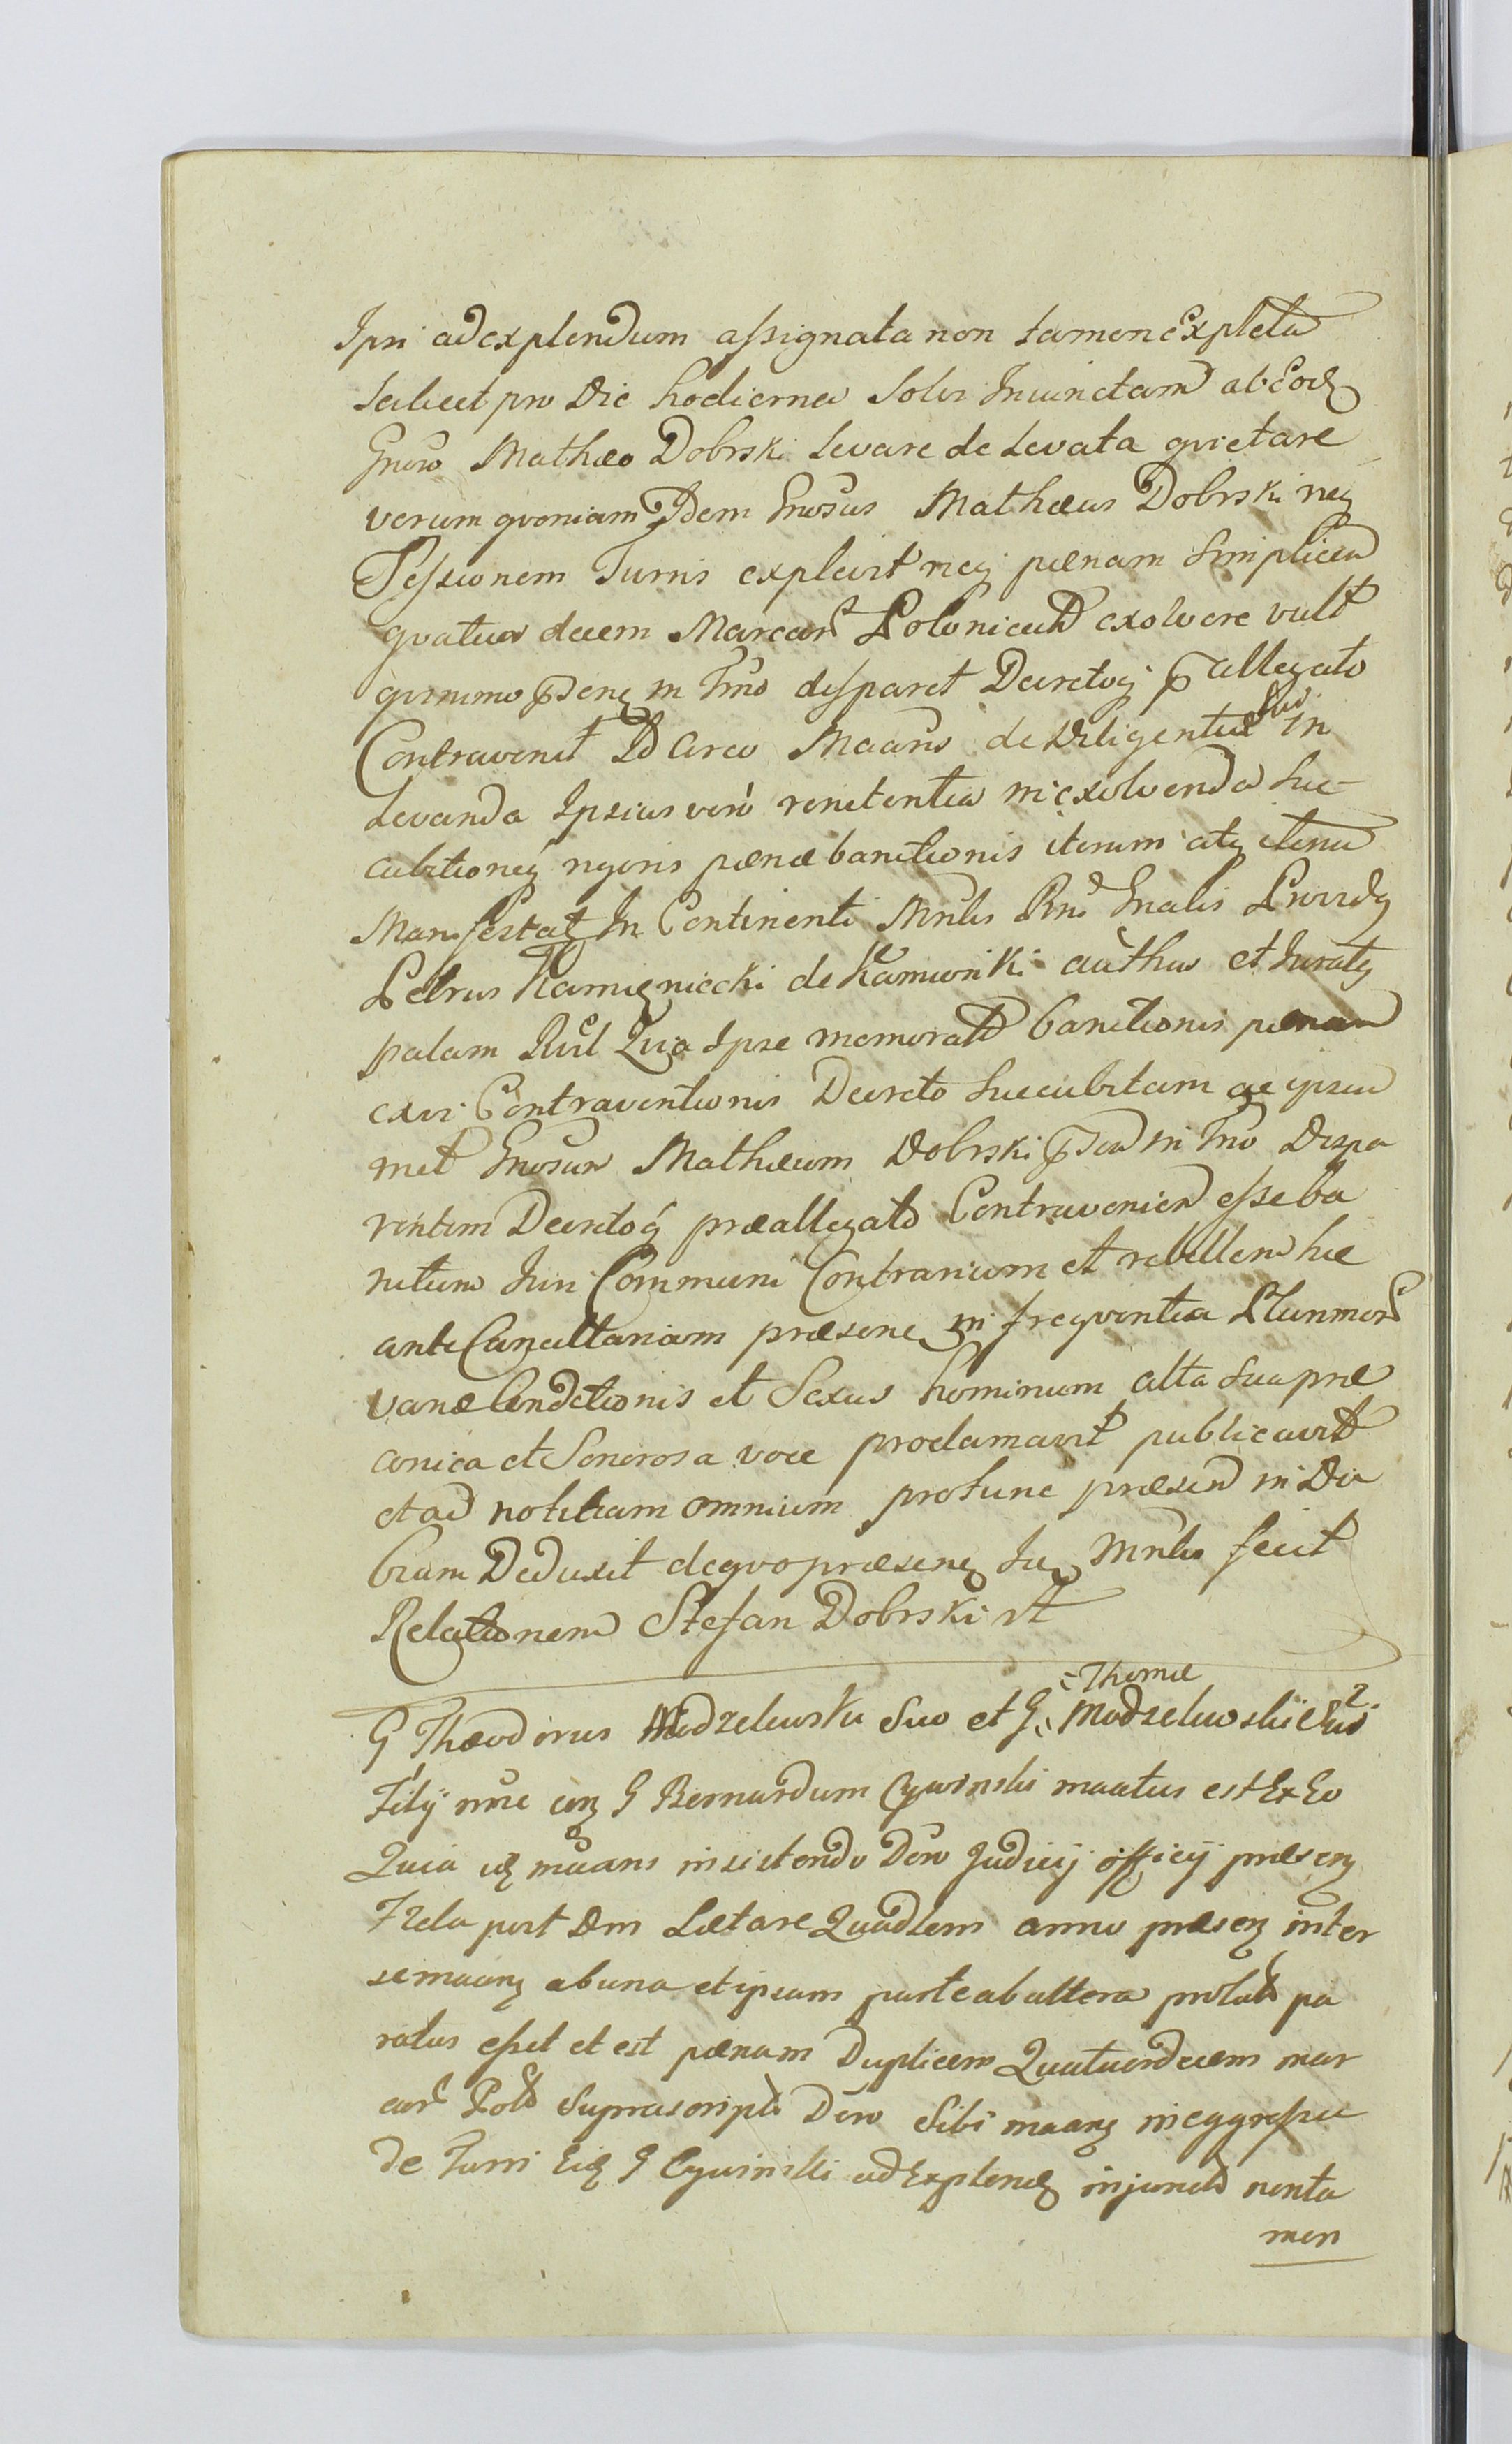 Ipsi ad explendum assignata non tamen Expleta
scilicet pro Die hodierna Solis Iniunctam ab Eod
Gnoso Mathæo Dobrski Levare de Levata qvietare
verum qvoniam Idem Gnosus Mathæus Dobrski neq
Sessionem Turris explevit neq pœnam Simplicem
qvatuor decem Marcar Polonical exolvere vult
qvinimo pdene in Tmo disparet Decretoq p allegato
Contravenit Id Circo Maans de diligentia sua in
Levanda Ipsius vero renitentia in exolvenda suc-
cubitioneq rigoris pœnæ banitionis iterum atq iterum
Manifestat In Continenti Mnlis Rni Gnalis Provid
Petrus Kamięniecki de Kamionki authus et Iurat
palam Rcl Qvia Ipse memorat banitionis pœnam
exvi Contraventionis Decreto succubitam ac ipsum
met Gnosum Mathæum Dobrski pdem in Tmo Dispa
rentem Decretoq præallegato Contravenien esse ba
nitum Iuri Communi Contrarium et rebellem hic
ante Cancellariam præsene in freqventia Plurimor
variæ Conditionis et Sexus hominum alta sua præ
conica et Sonorosa voce proclamavit publicavit
et ad notitiam omnium protunc præsen in Du
biam Deduxit deqvo præsene suę Mnlis fecit
Relationem Stefan Dobrski st
Thomæ
G Theodorus Modzelewski Suo et G. Modzelewskie sui
Filij nne con G Bernardum Cywinski maatus est Ex Eo
Quia id maans insistendo Dëro Judicij officij præsen
Frela post Dm Lætare Quadlem anno præsen inter
se maang ab una et ipsam parte ab altera prolato pa
ratus esset et est pœnam Duplicem Quatuordecem mar
car Pol suprascripto Dëro Sibi maang in eggressu
de Turri Eid G Cywinski ad Explend injunct nonta
men